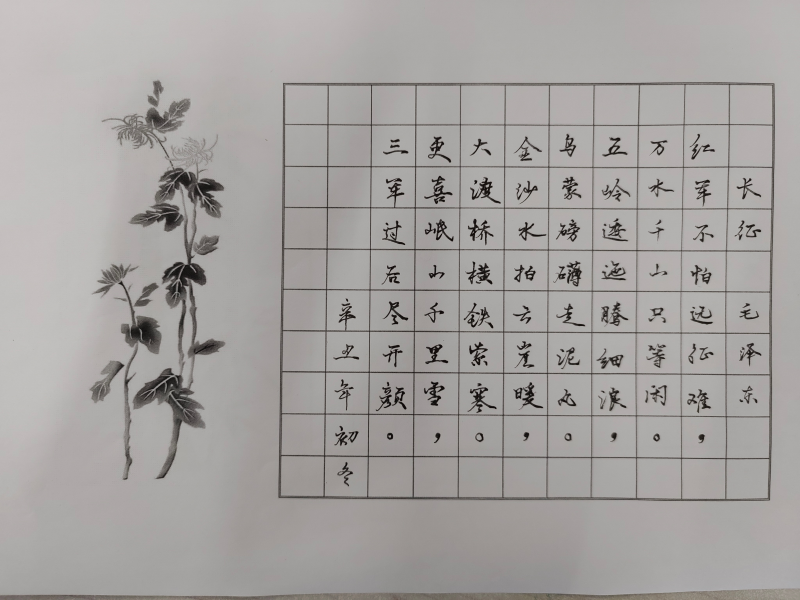 长征 毛泽东
红军不怕远征难，
万水千山只等闲。
五岭逶迤腾细浪，
乌蒙磅礴走泥丸。
金沙水拍云崖暖，
大渡桥横铁索寒。
更喜岷山千里雪，
三军过后尽开颜。
辛丑年初冬